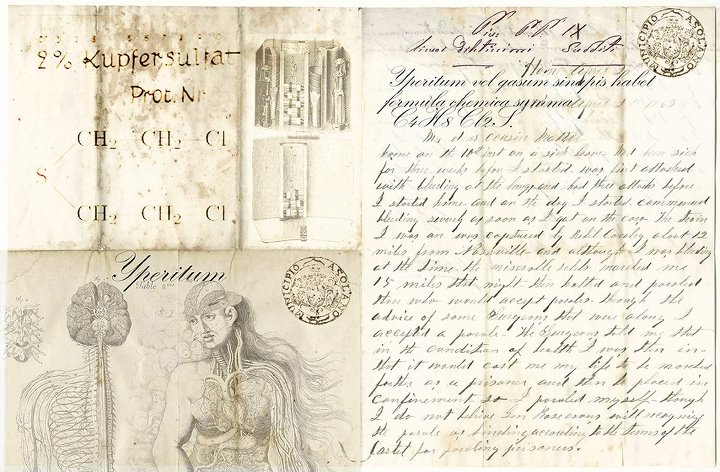 2% Kupfersulfat
Prot. Nr
CH2 CH2 Cl
S
CH2 CH2 Cl
Yperitum
Table 8
MUNICIPIO ASOLANO
Pius P.P. IX
MUNICIPIO ASOLANO
Yperitum vel gasum sinapis habet
formula chemica symma
C4H8Cl2S.
My dear cousin
home on the 10th inst on a sick leave. Not been sick
for three weeks before I started was first attacked
with bleeding at the lungs and had three attacks before
I started home and on the day I started commenced
bleeding severely as soon as I got on the cars. The train
I was on was captured by Rebel Cavalry about 12
miles from Nashville and although I was bleeding
at the time the miserable rebels marched me
15 miles that night then halted and paroled
those who would accept paroles through the
advice of some Surgeons that were along I
accepted a parole. The Surgeons told me that
in the condition of health I was then in
that it would cost me my life to be marched
farther as a prisoner and then be placed in
confinement so I paroled myself though
I do not believe Gen Rosecrans will recognize
the parole as binding according to the terms of the
Cartel for paroling prisoners.